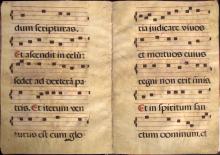 dum scripturas.
Et ascendit in celū:
sedet ad dexterā pa
tris. Et iterum ven
turus est cum glo
ria judicare vivos
et mortuos cuius
regni non erit finis.
Et in spiritum san
ctum dominum. et